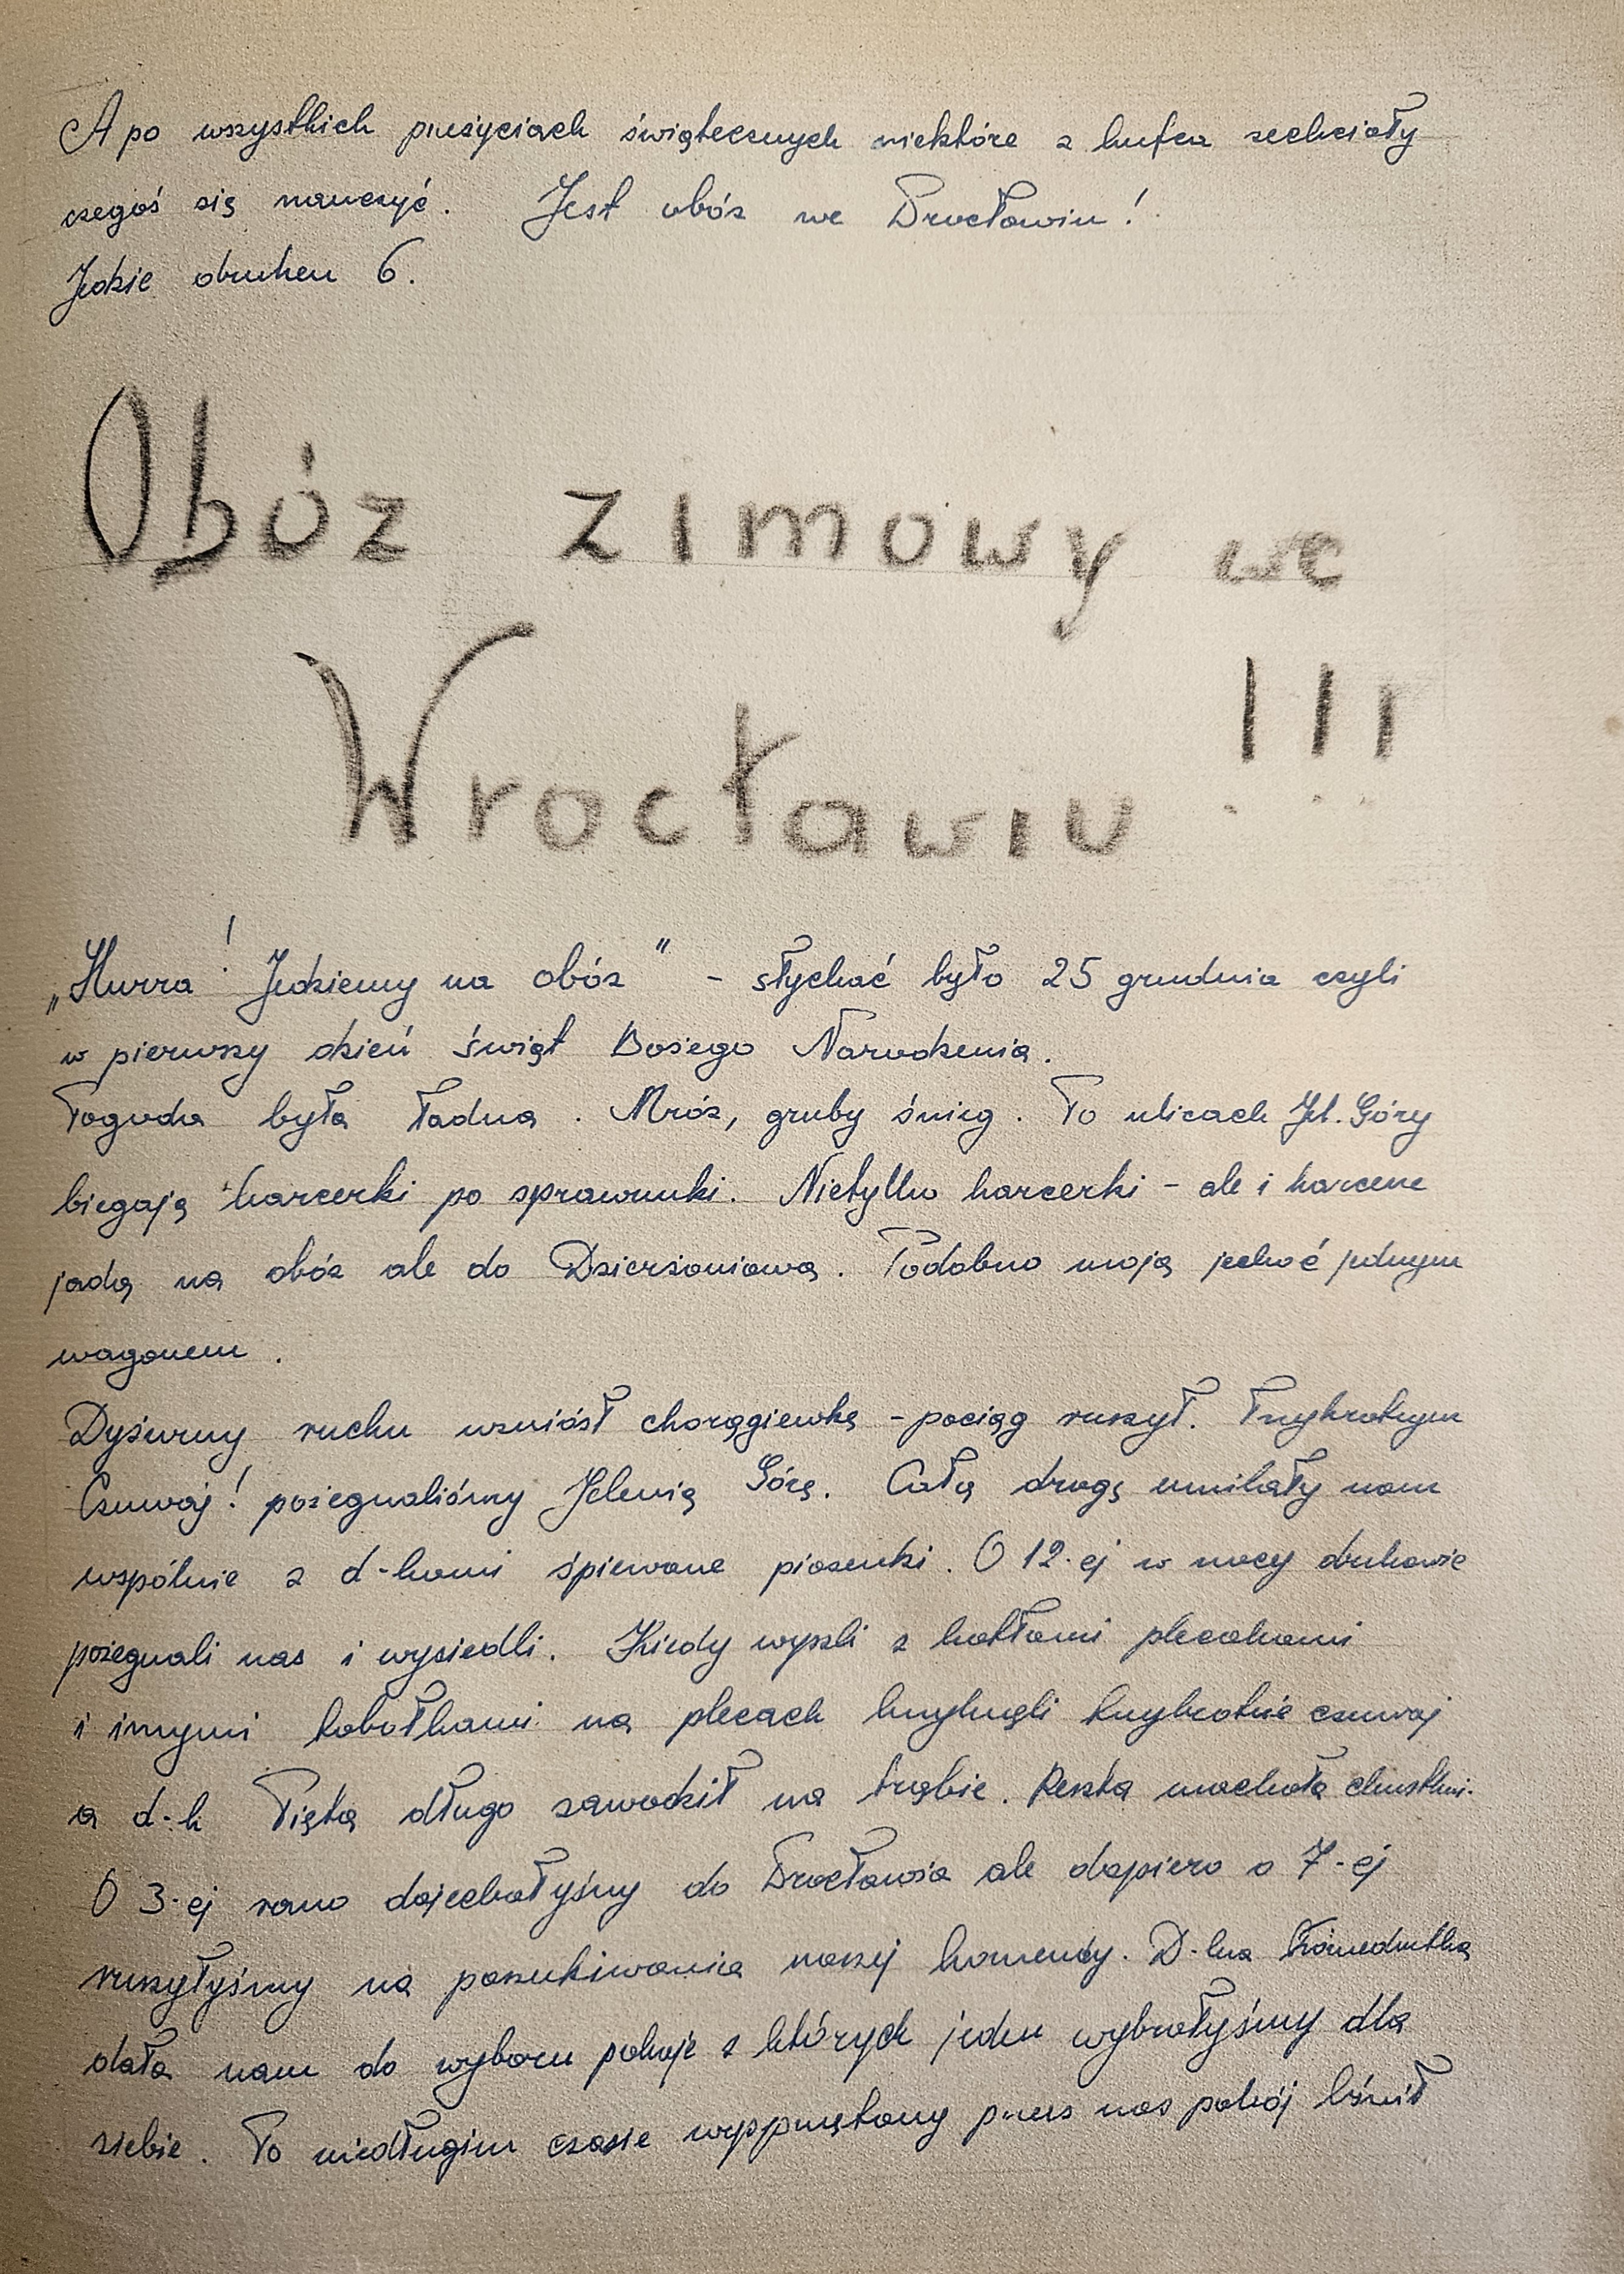 A po wszystkich przeżyciach świątecznych niektóre z hufca zechciały
czegoś się nauczyć. Jest obóz we Wrocławiu!
Jedzie druhen 6.
Obóz zimowy we
Wrocławiu !!!
„Hurra! Jedziemy na obóz" - słychać było 25 grudnia czyli
w pierwszy dzień świąt Bożego Narodzenia.
Pogoda była ładna. Mróz, gruby śnieg. Po ulicach Jel. Góry
biegają harcerki po sprawunki. Nietylko harcerki - ale i harcerze
jadą na obóz ale do Dzierżoniowa. Podobno mają jechać jednym
wagonem.
Dyżurny ruchu wzniósł chorągiewkę - pociąg ruszył. Trzykrotnym
Czuwaj! pożegnaliśmy Jelenią Górę. Całą drogę umilały nam
wspólnie z d-hami śpiewane piosenki. O 12-ej w nocy druhowie
pożegnali nas i wysiedli. Kiedy wyszli z kotłami plecakami
i innymi tobołkami na plecach krzyknęli trzykrotnie czuwaj
a d-h Pięta długo zawodził na trąbie. Reszta machała chustkami.
O 3-ej rano dojechałyśmy do Wrocławia ale dopiero o 7-ej
ruszyłyśmy na poszukiwania naszej komendy. D-hna
dała nam do wyboru pokoje z których jeden wybrałyśmy dla
siebie. Po niedługim czasie wyprzątany przez nas pokój lśnił